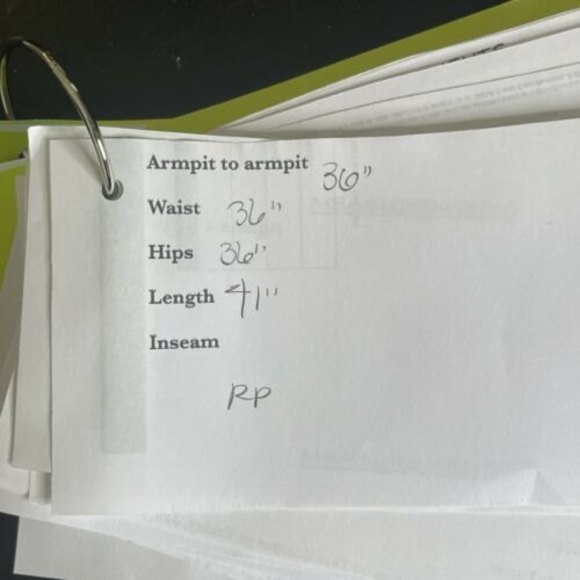 Armpit to armpit 36"
Waist 36"
Hips 36"
Length 41"
Inseam
RP